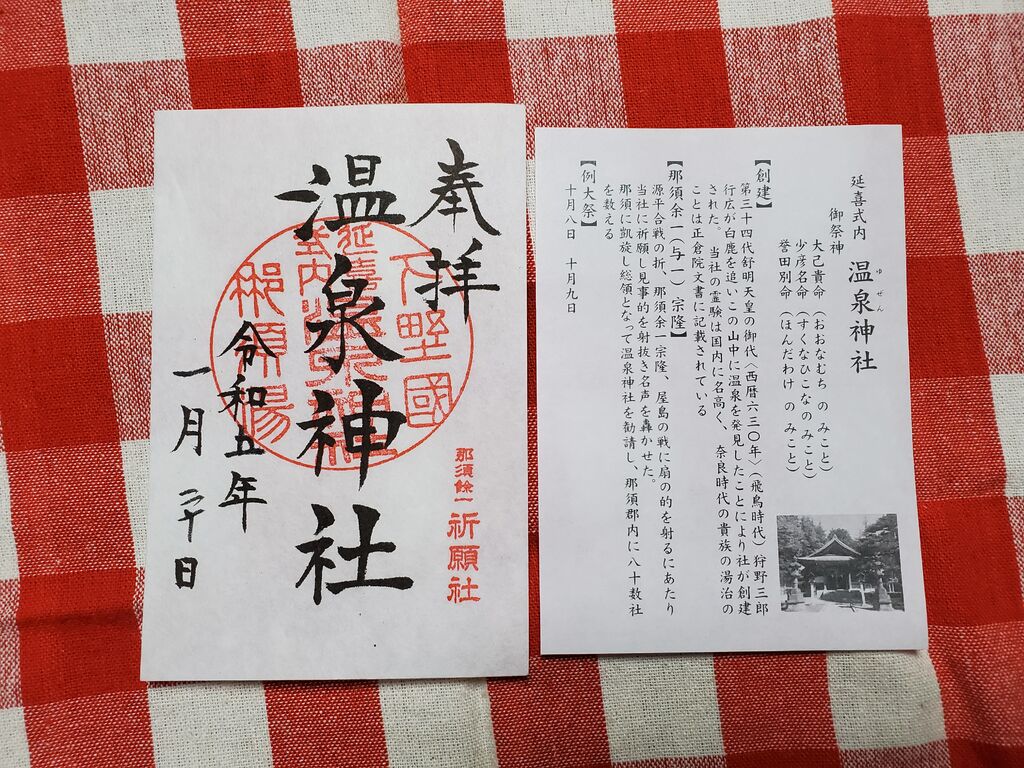 奉拝
那須餘一祈願社
下野國
延喜
式内
那須湯
温泉神社
令和五年
一月二十日
延喜式内 温泉神社
ゆ ぜん
御祭神
大己貴命(おおなむち のみこと)
少彦名命(すくなひこなのみこと)
誉田別命(ほんだわけ のみこと)
【創建】
第三十四代舒明天皇の御代〈西暦六三〇年〉(飛鳥時代)狩野三郎
行広が白鹿を追いこの山中に温泉を発見したことにより社が創建
された。当社の霊験は国内に名高く、奈良時代の貴族の湯治の
ことは正倉院文書に記載されている
【那須余一(与一)宗隆】
源平合戦の折、那須余一宗隆、屋島の戦に扇の的を射るにあたり
当社に祈願し見事的を射抜き名声を轟かせた。
那須に凱旋し総領となって温泉神社を勧請し、那須郡内に八十数社
を数える
【例大祭】
十月八日 十月九日